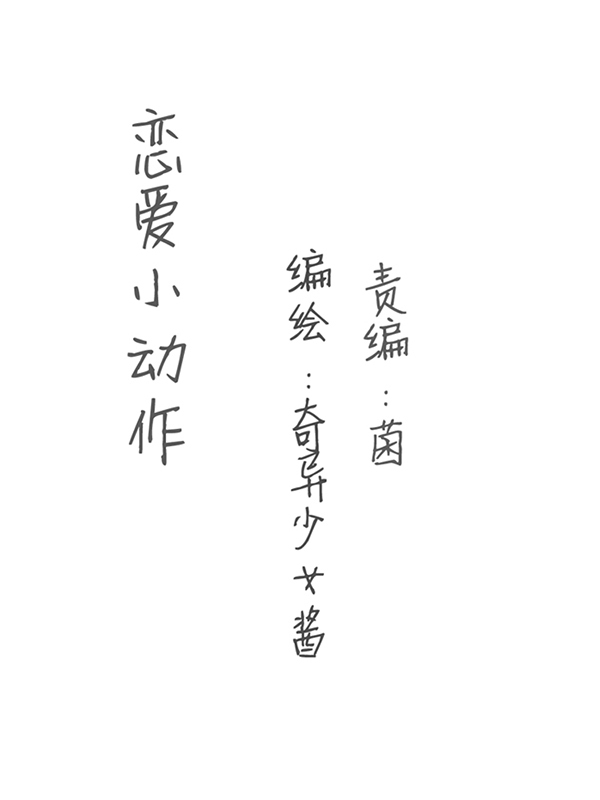 恋爱小动作
编绘：奇异少女酱
责编：菌